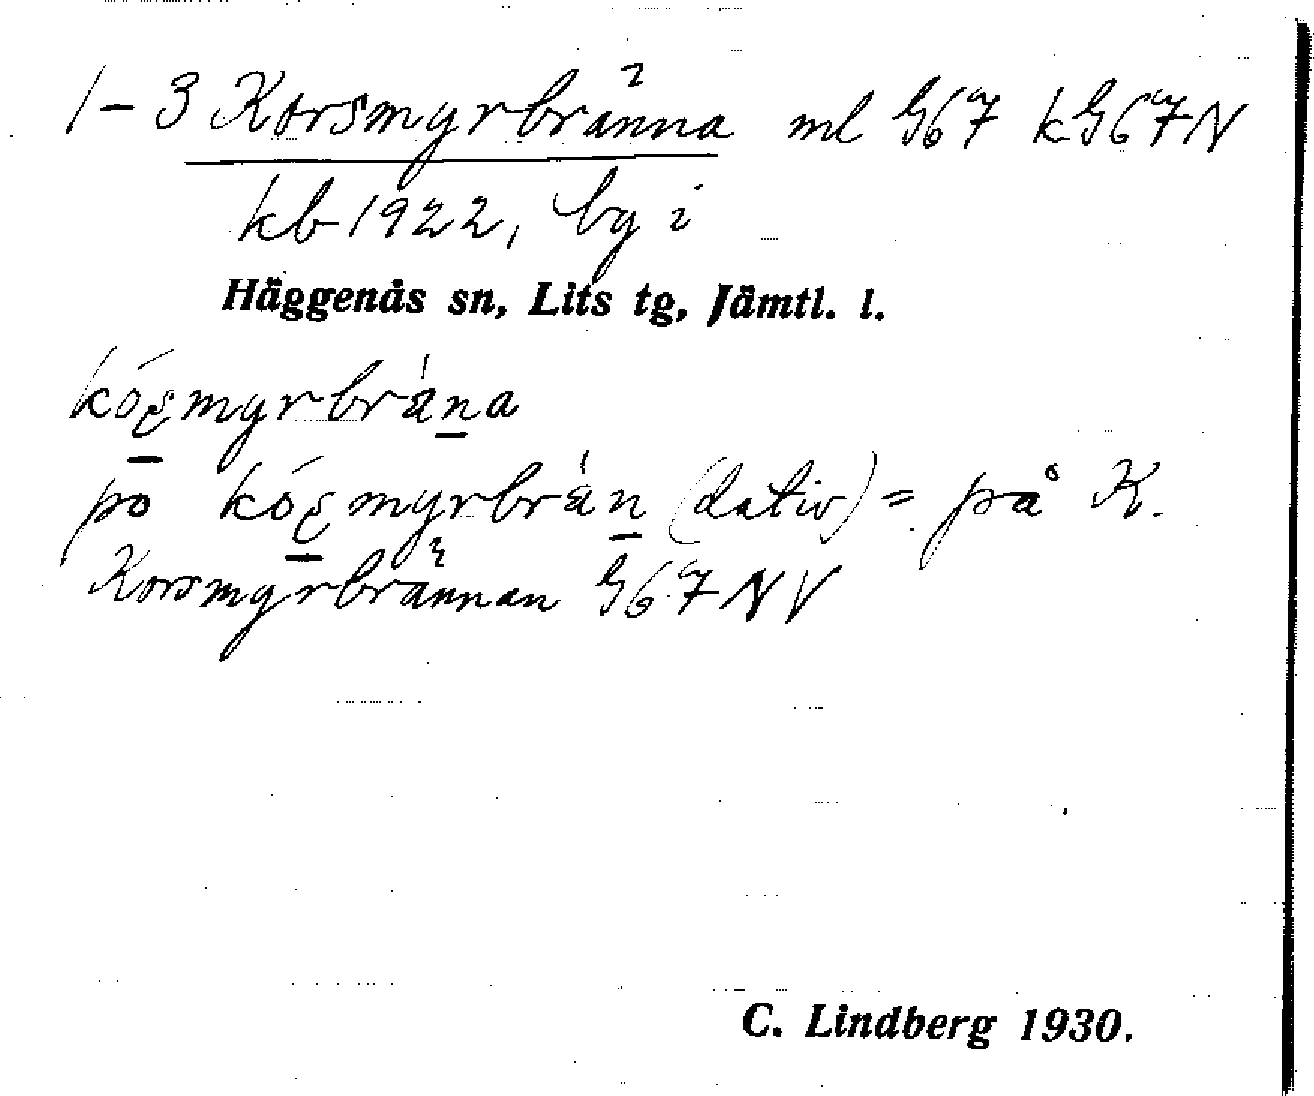 1-3 Korsmyrbränna ml G67 kG67N
kb 1922, by i
Häggenås sn, Lits tg, Jämtl. l.
kórsmyrbräna
po kórsmyrbrän (dativ) = på K.
Korsmyrbrännan G67NV
C. Lindberg 1930.